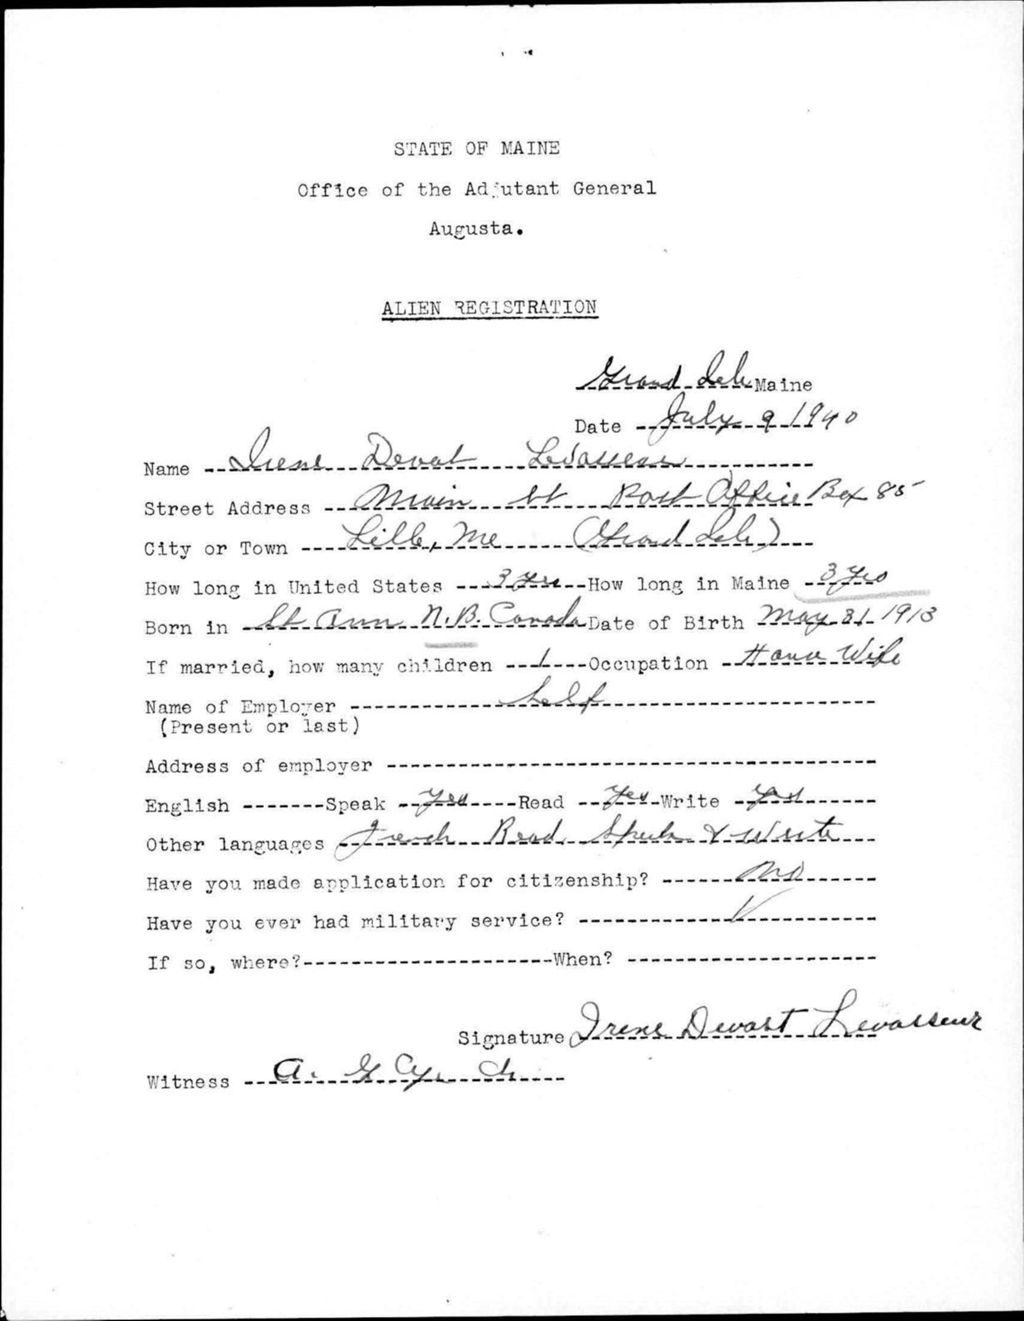 STATE OF MAINE
Office of the Adjutant General
Augusta.
ALIEN REGISTRATION
Grand Isle Maine
Date July 9 1940
Name Irene Devost Levasseur
Street Address Main St Post Office Box 85
City or Town Lille, Me (Grand Isle)
How long in United States 3 yrs How long in Maine 3 yrs
Born in St Ann N.B. Canada Date of Birth May 31 1913
If married, how many children 1 Occupation House Wife
Name of Employer Self
(Present or last)
Address of employer
English Speak Yes Read Yes Write Yes
Other languages French Read Speak & Write
Have you made application for citizenship? No
Have you ever had military service?
If so, where? When?
Signature Irene Devost Levasseur
Witness A. G. Cyr